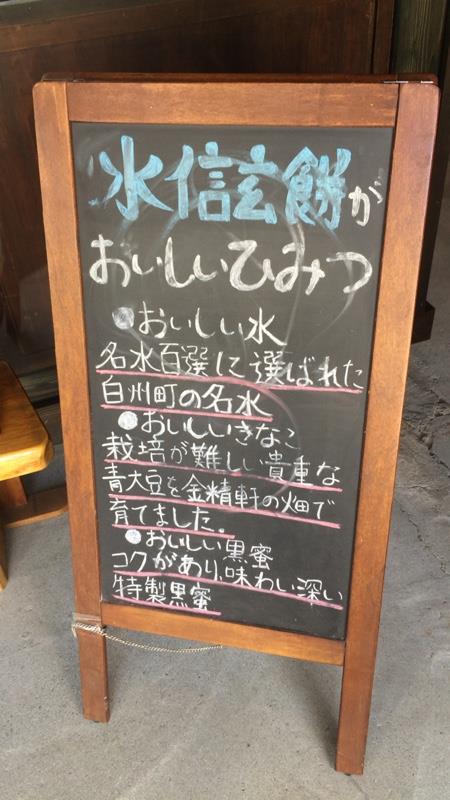 水信玄餅が
おいしいひみつ
●おいしい水
名水百選に選ばれた
白州町の名水
●おいしいきなこ
栽培が難しい貴重な
青大豆を金精軒の畑で
育てました。
●おいしい黒蜜
コクがあり、味わい深い
特製黒蜜